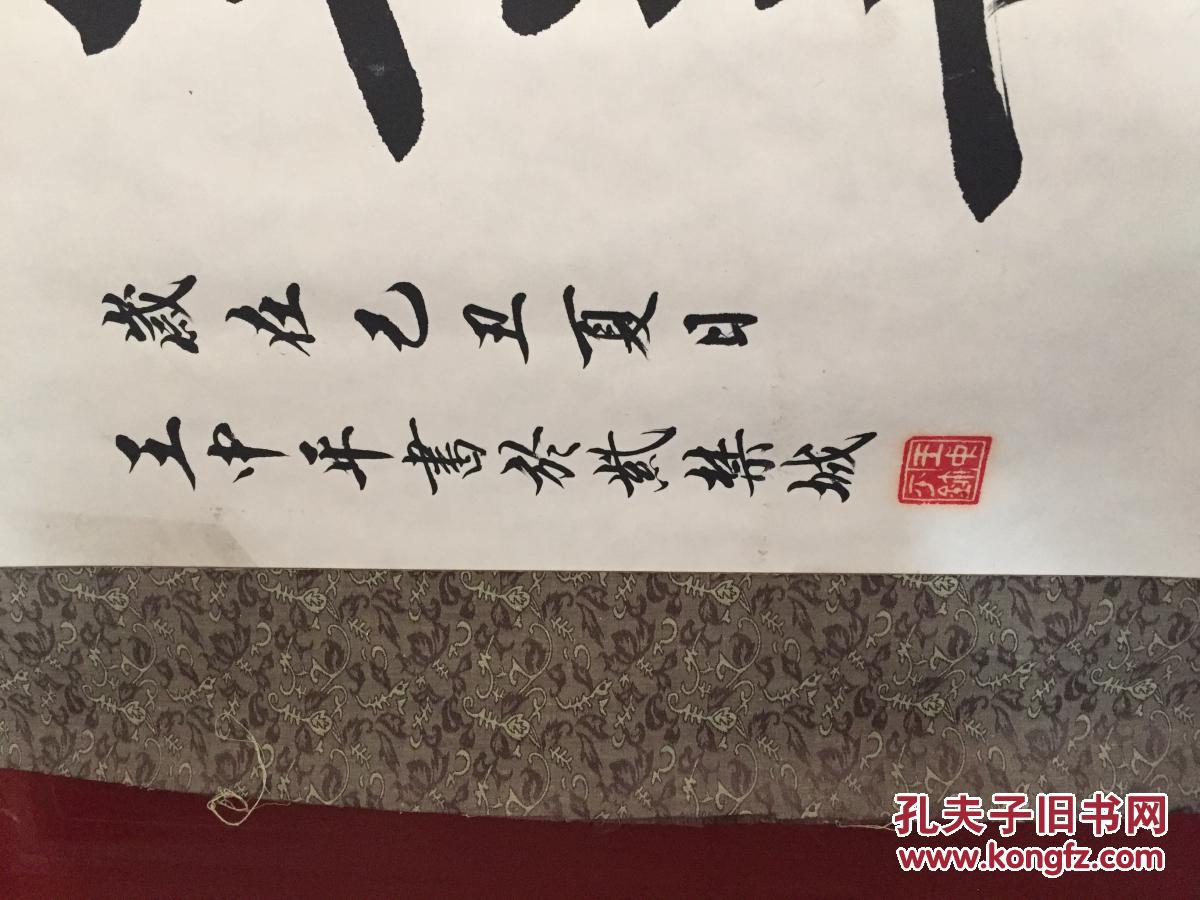 歲在己丑夏日
王中年書於城
王中
孔夫子旧书网
www.kongfz.com